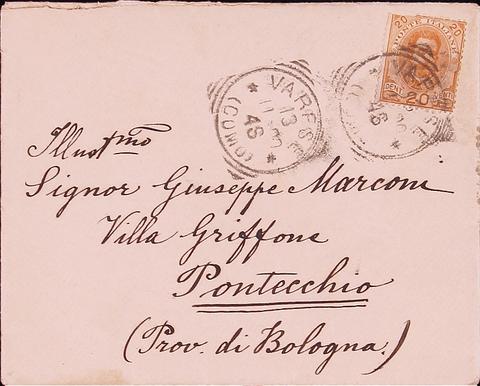 20 POSTE ITALIANE 20
20
VARESE
13
(COMO)
46
VARESE
46
Illustmo
Signor Giuseppe Marconi
Villa Griffone
Pontecchio
(Prov. di Bologna.)